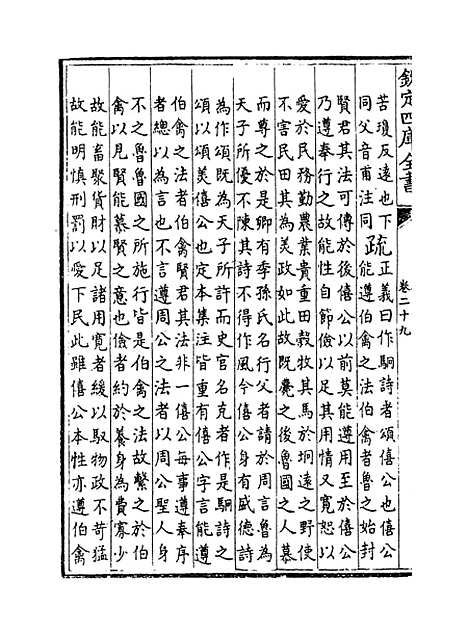 欽定四庫全書
卷二十九
苦瓊反遠也下
同父音甫注同
疏
正義曰作駉詩者頌僖公也僖公
能遵伯禽之法伯禽者魯之始封
賢君其法可傳於後僖公以前莫能遵用至於僖公
乃遵奉行之故能性自節儉以足其用情又寬恕以
愛於民務勤農業貴重田穀牧其馬於坰遠之野使
不害民田其為美政如此故既薨之後魯國之人慕
而尊之於是卿有季孫氏名行父者請於周言魯為
天子所優不陳其詩不得作風今僖公身有盛德詩
為作頌既為天子所許而史官名克者作是駉詩之
頌以頌美僖公也定本集注皆重有僖公字言能遵
伯禽之法者伯禽賢君其法非一僖公每事遵奉序
者總以為言也不言遵周公之法者以周公聖人身
不之魯魯國之所施行皆是伯禽之法故繫之於伯
禽以見賢能慕賢之意也儉者約於養身為費寡少
故能畜聚貨財以足諸用寬者緩以馭物政不苛猛
故能明慎刑罰以愛下民此雖僖公本性亦遵伯禽